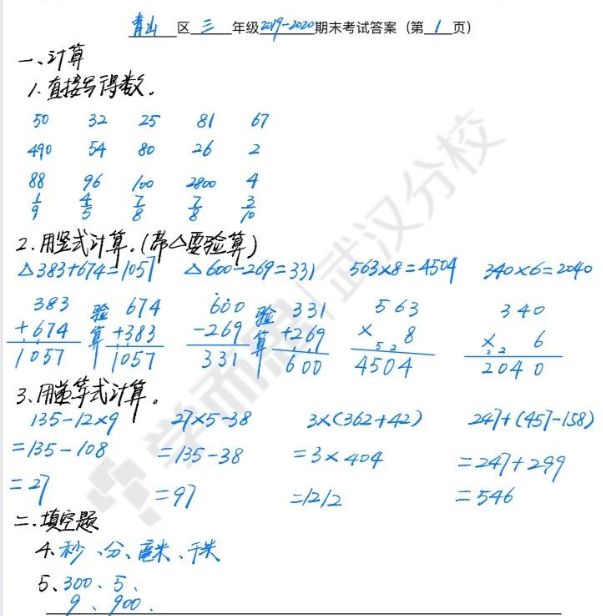 青山区三年级2019-2020期末考试答案（第1页）
一、计算
1.直接写得数。
50 32 25 81 67
490 54 80 26 2
88 96 100 2800 4
1/9 4/5 7/8 7/8 3/10
2.用竖式计算。(带△要验算)
△383+674=1057 △600-269=331 563×8=4504 340×6=2040
383 验 674 600 验 331 563 340
+674 算 +383 -269 算 +269 × 8 × 6
1057 1057 331 600 4504 2040
3、用递等式计算。
135-12×9 27×5-38 3×(362+42) 247+(457-158)
=135-108 =135-38 =3×404 =247+299
=27 =97 =1212 =546
二、填空题
4、秒、分、毫米、千米
5、300、5、
9、900、
学而思 武汉分校